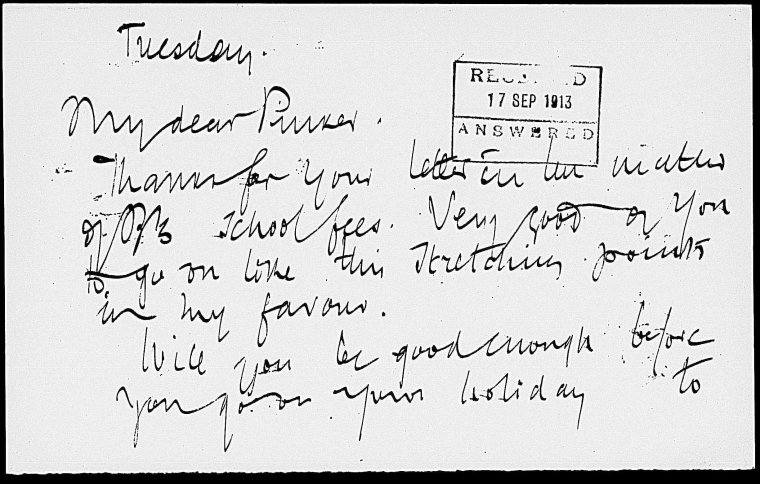 Tuesday.
RECEIVED
17 SEP 1913
ANSWERED
My dear Pinker.
Thanks for your letter in the matter
of B's school fees. Very good of you
to go on like this stretching points
in my favour.
Will you be good enough before
you go on your holiday to